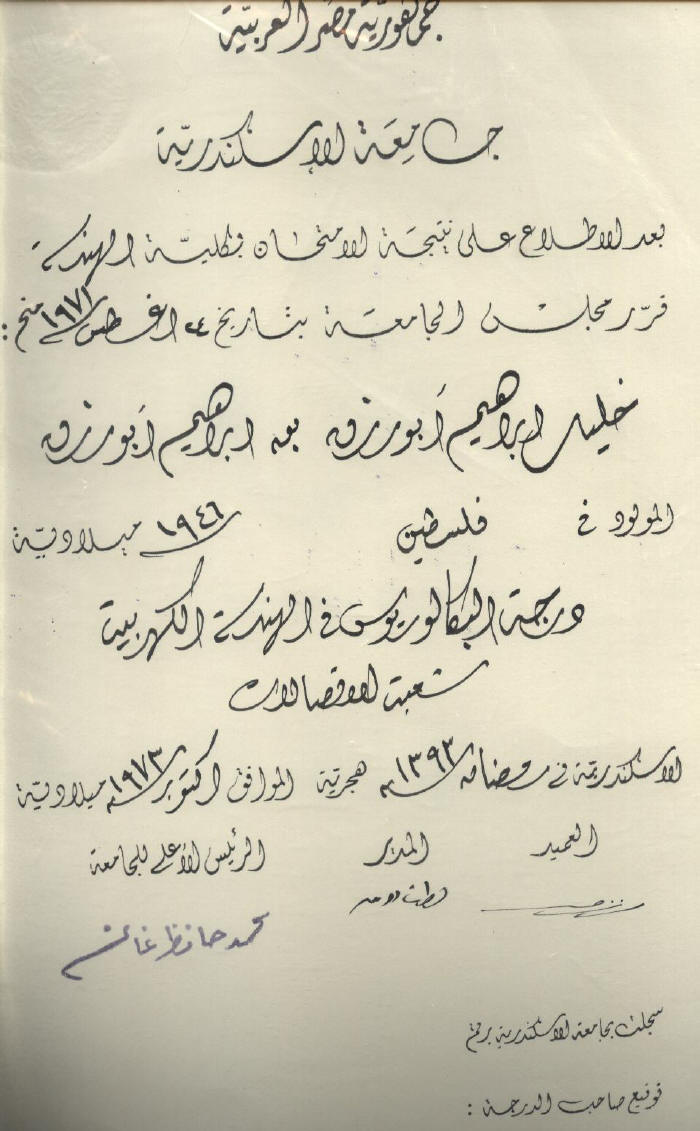 جمهورية مصر العربية
جامعة الإسكندرية
بعد الاطلاع على نتيجة الامتحان بكلية الهندسة
قرر مجلس الجامعة بتاريخ ٢٤ أغسطس ١٩٧١ منح :
خليل ابراهيم أبو رزق بن ابراهيم أبو رزق
المولود في فلسطين ١٩٤٦ ميلادية
درجة البكالوريوس في الهندسة الكهربية
شعبة الاتصالات
الاسكندرية في رمضان ١٣٩٣ هجرية الموافق أكتوبر ١٩٧٣ ميلادية
العميد المدير الرئيس الأعلى للجامعة
محمد حافظ غانم
سجلت بجامعة الاسكندرية برقم
توقيع صاحب الدرجة :